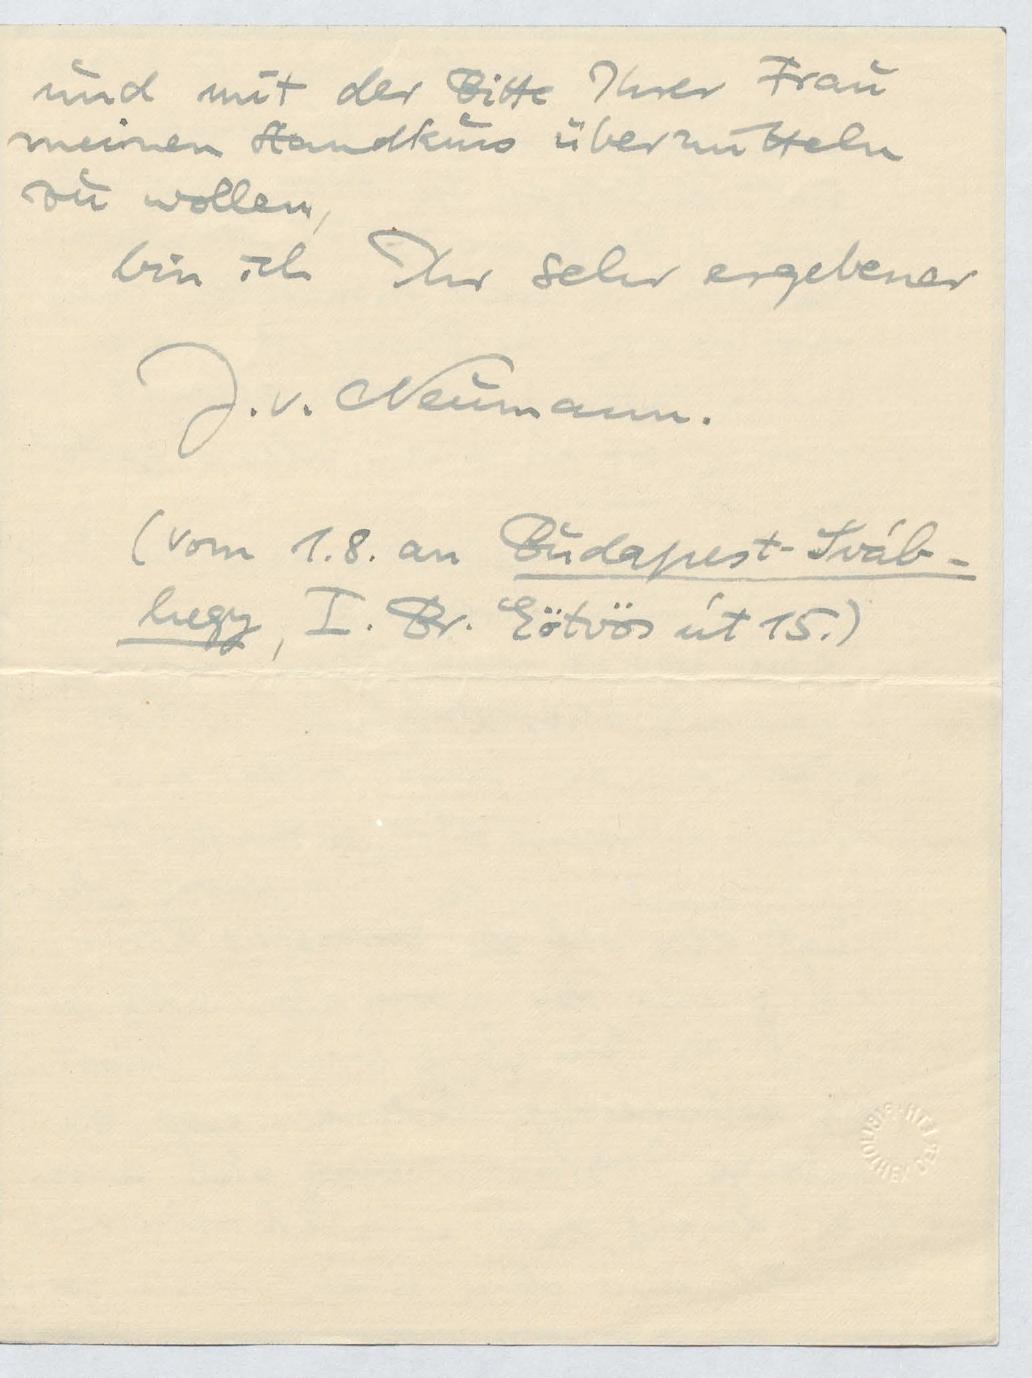 und mit der Bitte Ihrer Frau
meinen Handkuss übermitteln
zu wollen,
bin ich Ihr sehr ergebener
J. v. Neumann.
(vom 1.8. an Budapest-Sváb-
hegy, I. Br. Eötvös út 15.)